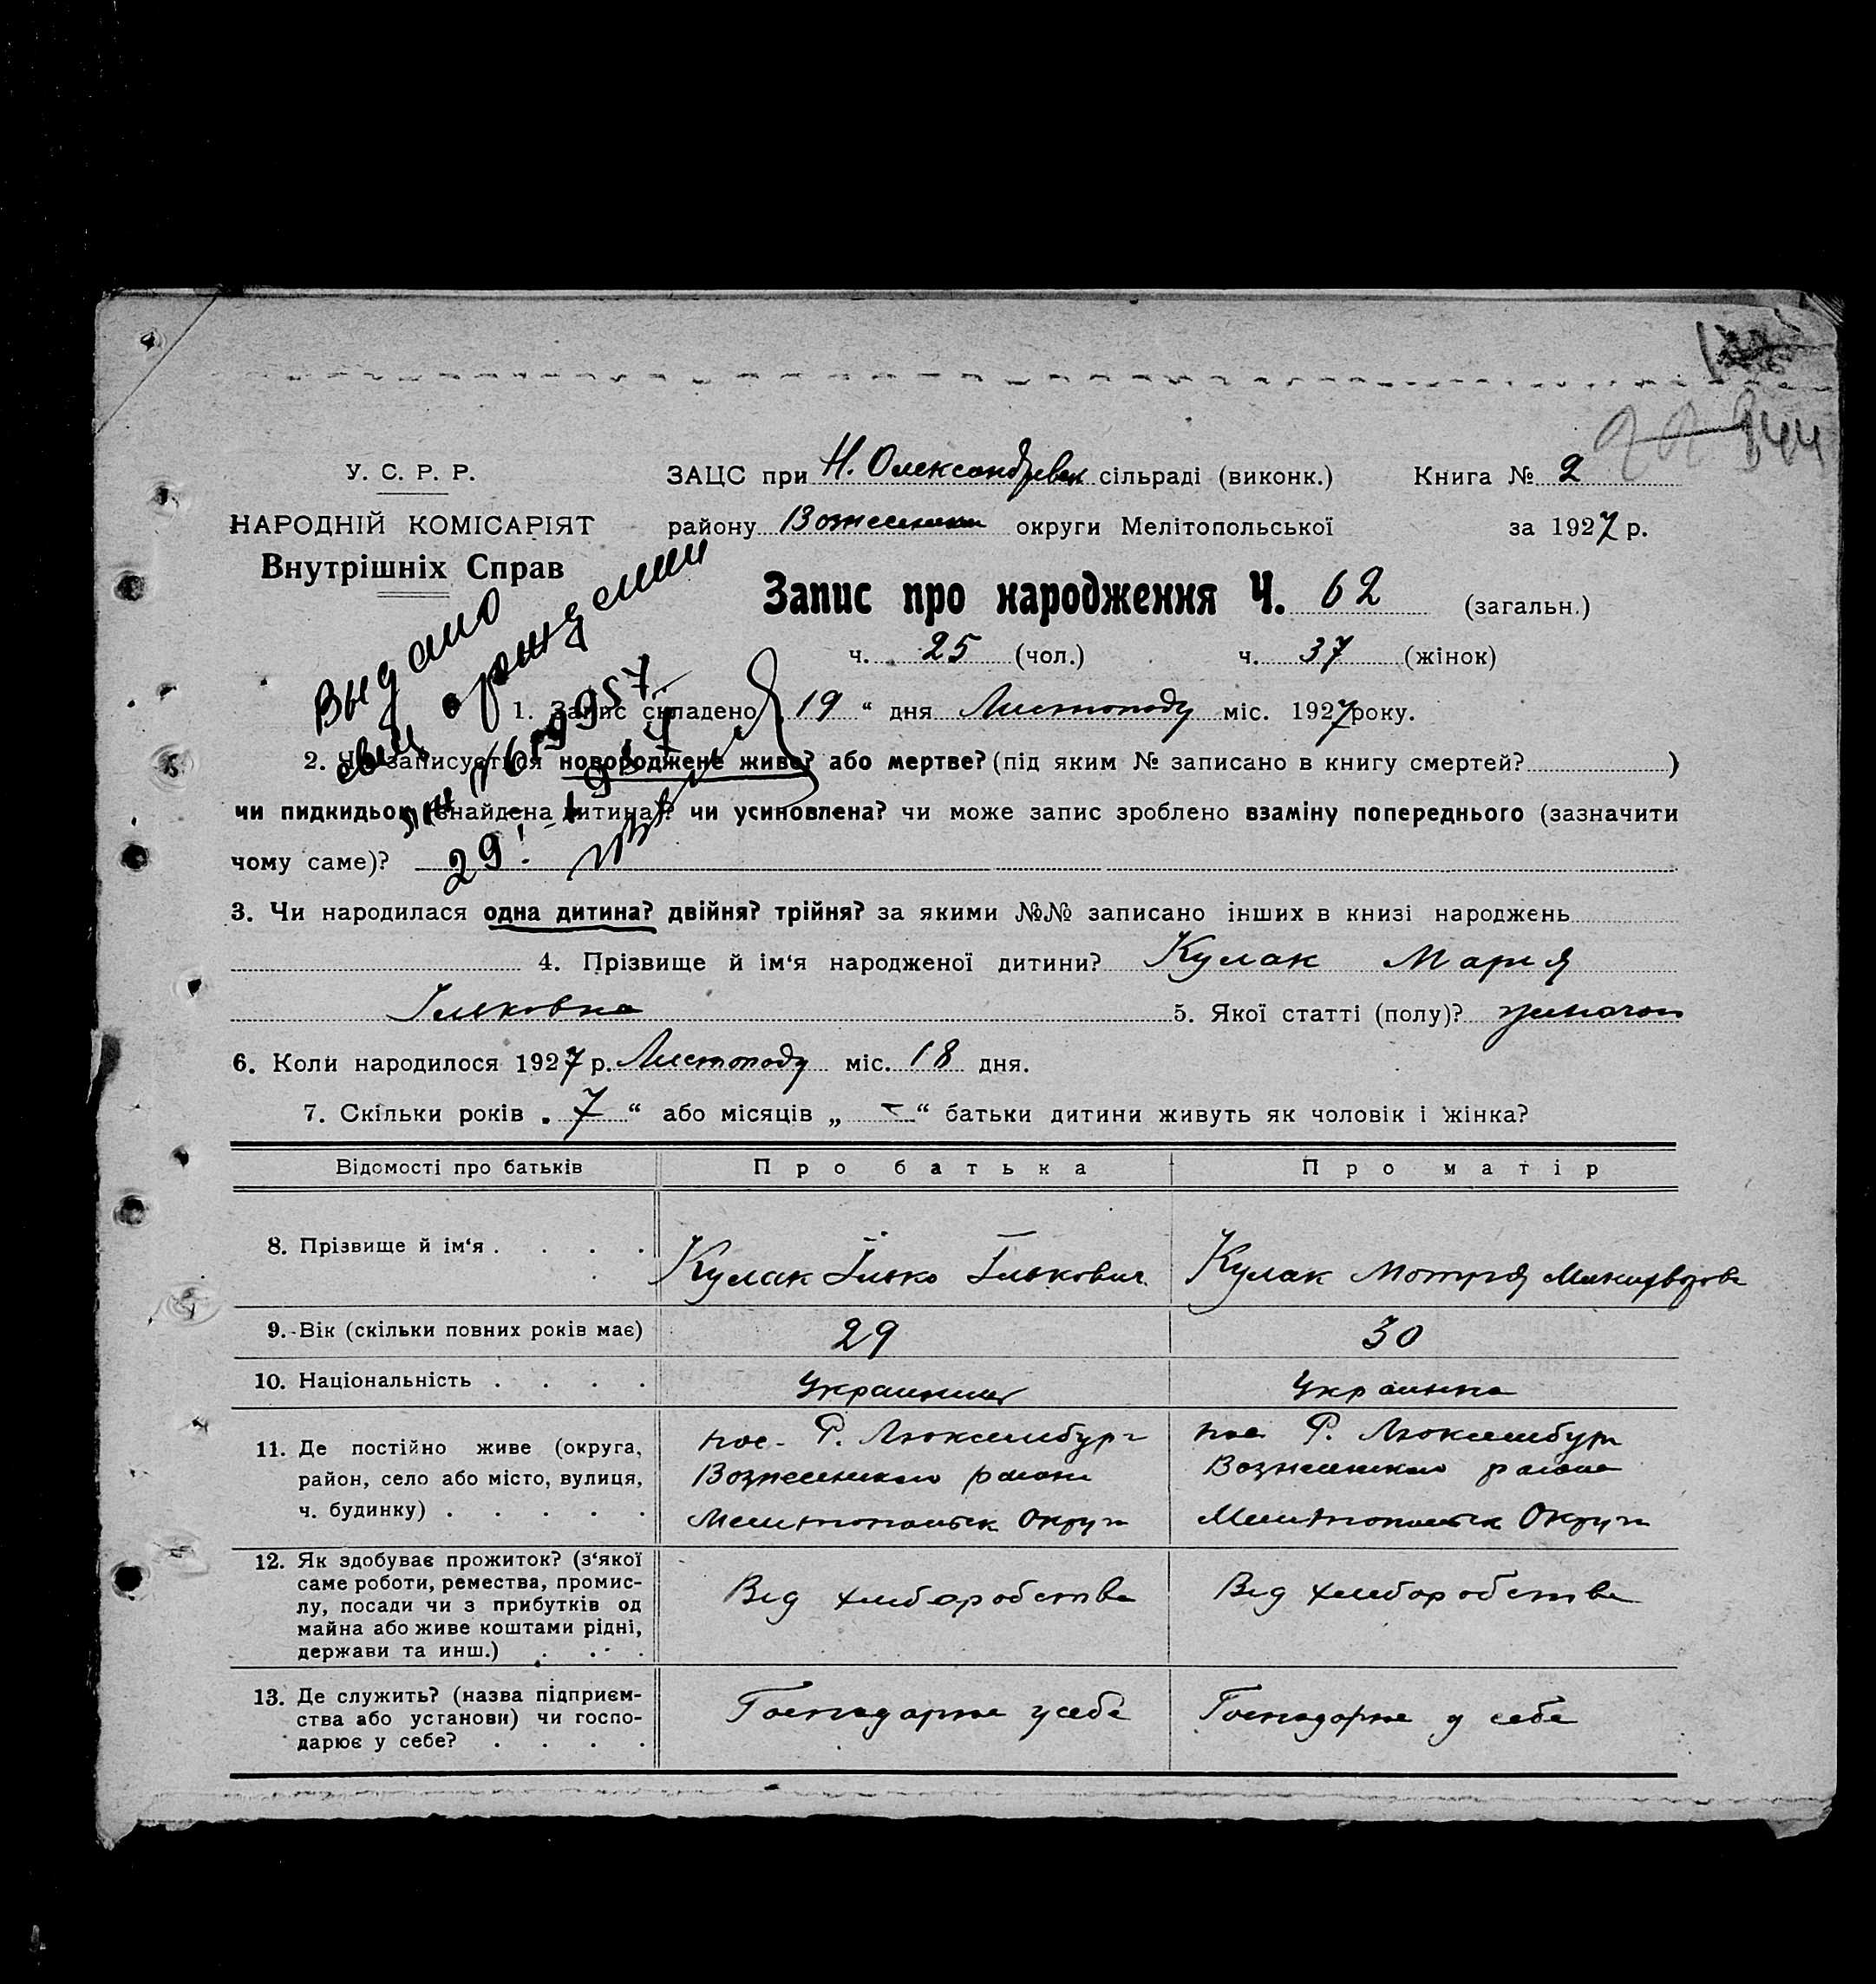 У. С. Р. Р.
НАРОДНІЙ КОМІСАРІЯТ
Внутрішніх Справ
ЗАЦС при Н. Олександрівськ сільраді (виконк.) Книга № 2
району округи Мелітопольської за 1927 р.
Запис про народження Ч. 62 (загальн.)
ч. 25 (чол.) ч. 37 (жінок)
Выдано
1. Запис складено 19 “ дня Листопаду міс. 1927 року.
2. Чи записується новороджене живе? або мертве? (під яким № записано в книгу смертей? )
чи пидкидьок (знайдена дитина)? чи усиновлена? чи може запис зроблено взаміну попереднього (зазначити
чому саме)?
3. Чи народилася одна дитина? двійня? трійня? за якими №№ записано інших в книзі народжень
4. Прізвище й ім‘я народженої дитини? Кулак Мария
Ільковна 5. Якої статті (полу)?
6. Коли народилося 1927 р. Листопаду міс. 18 дня.
7. Скільки років „ 7 “ або місяців „ – “ батьки дитини живуть як чоловік і жінка?
Відомості про батьків Про батька Про матір
8. Прізвище й ім‘я . . . . Кулак ІлькоІлькович Кулак Мотря
9. Вік (скільки повних років має) 29 30
10. Національність . . . . Украинець Украинка
11. Де постійно живе (округа, пос. Р. Люксембург пос. Р. Люксембург
район, село або місто, вулиця, Вознесенском района Вознесенском района
ч. будинку) . . . . . Мелитопольск Округи Мелитопольск Округи
12. Як здобуває прожиток? (з‘якої
саме роботи, ремества, промис-
лу, посади чи з прибутків од Від хлиборобства Від хлиборобства
майна або живе коштами рідні,
держави та инш.) . . .
13. Де служить? (назва підприєм-
ства або установи) чи госпо- Господарює у себе Господарює у себе
дарює у себе? . . . .